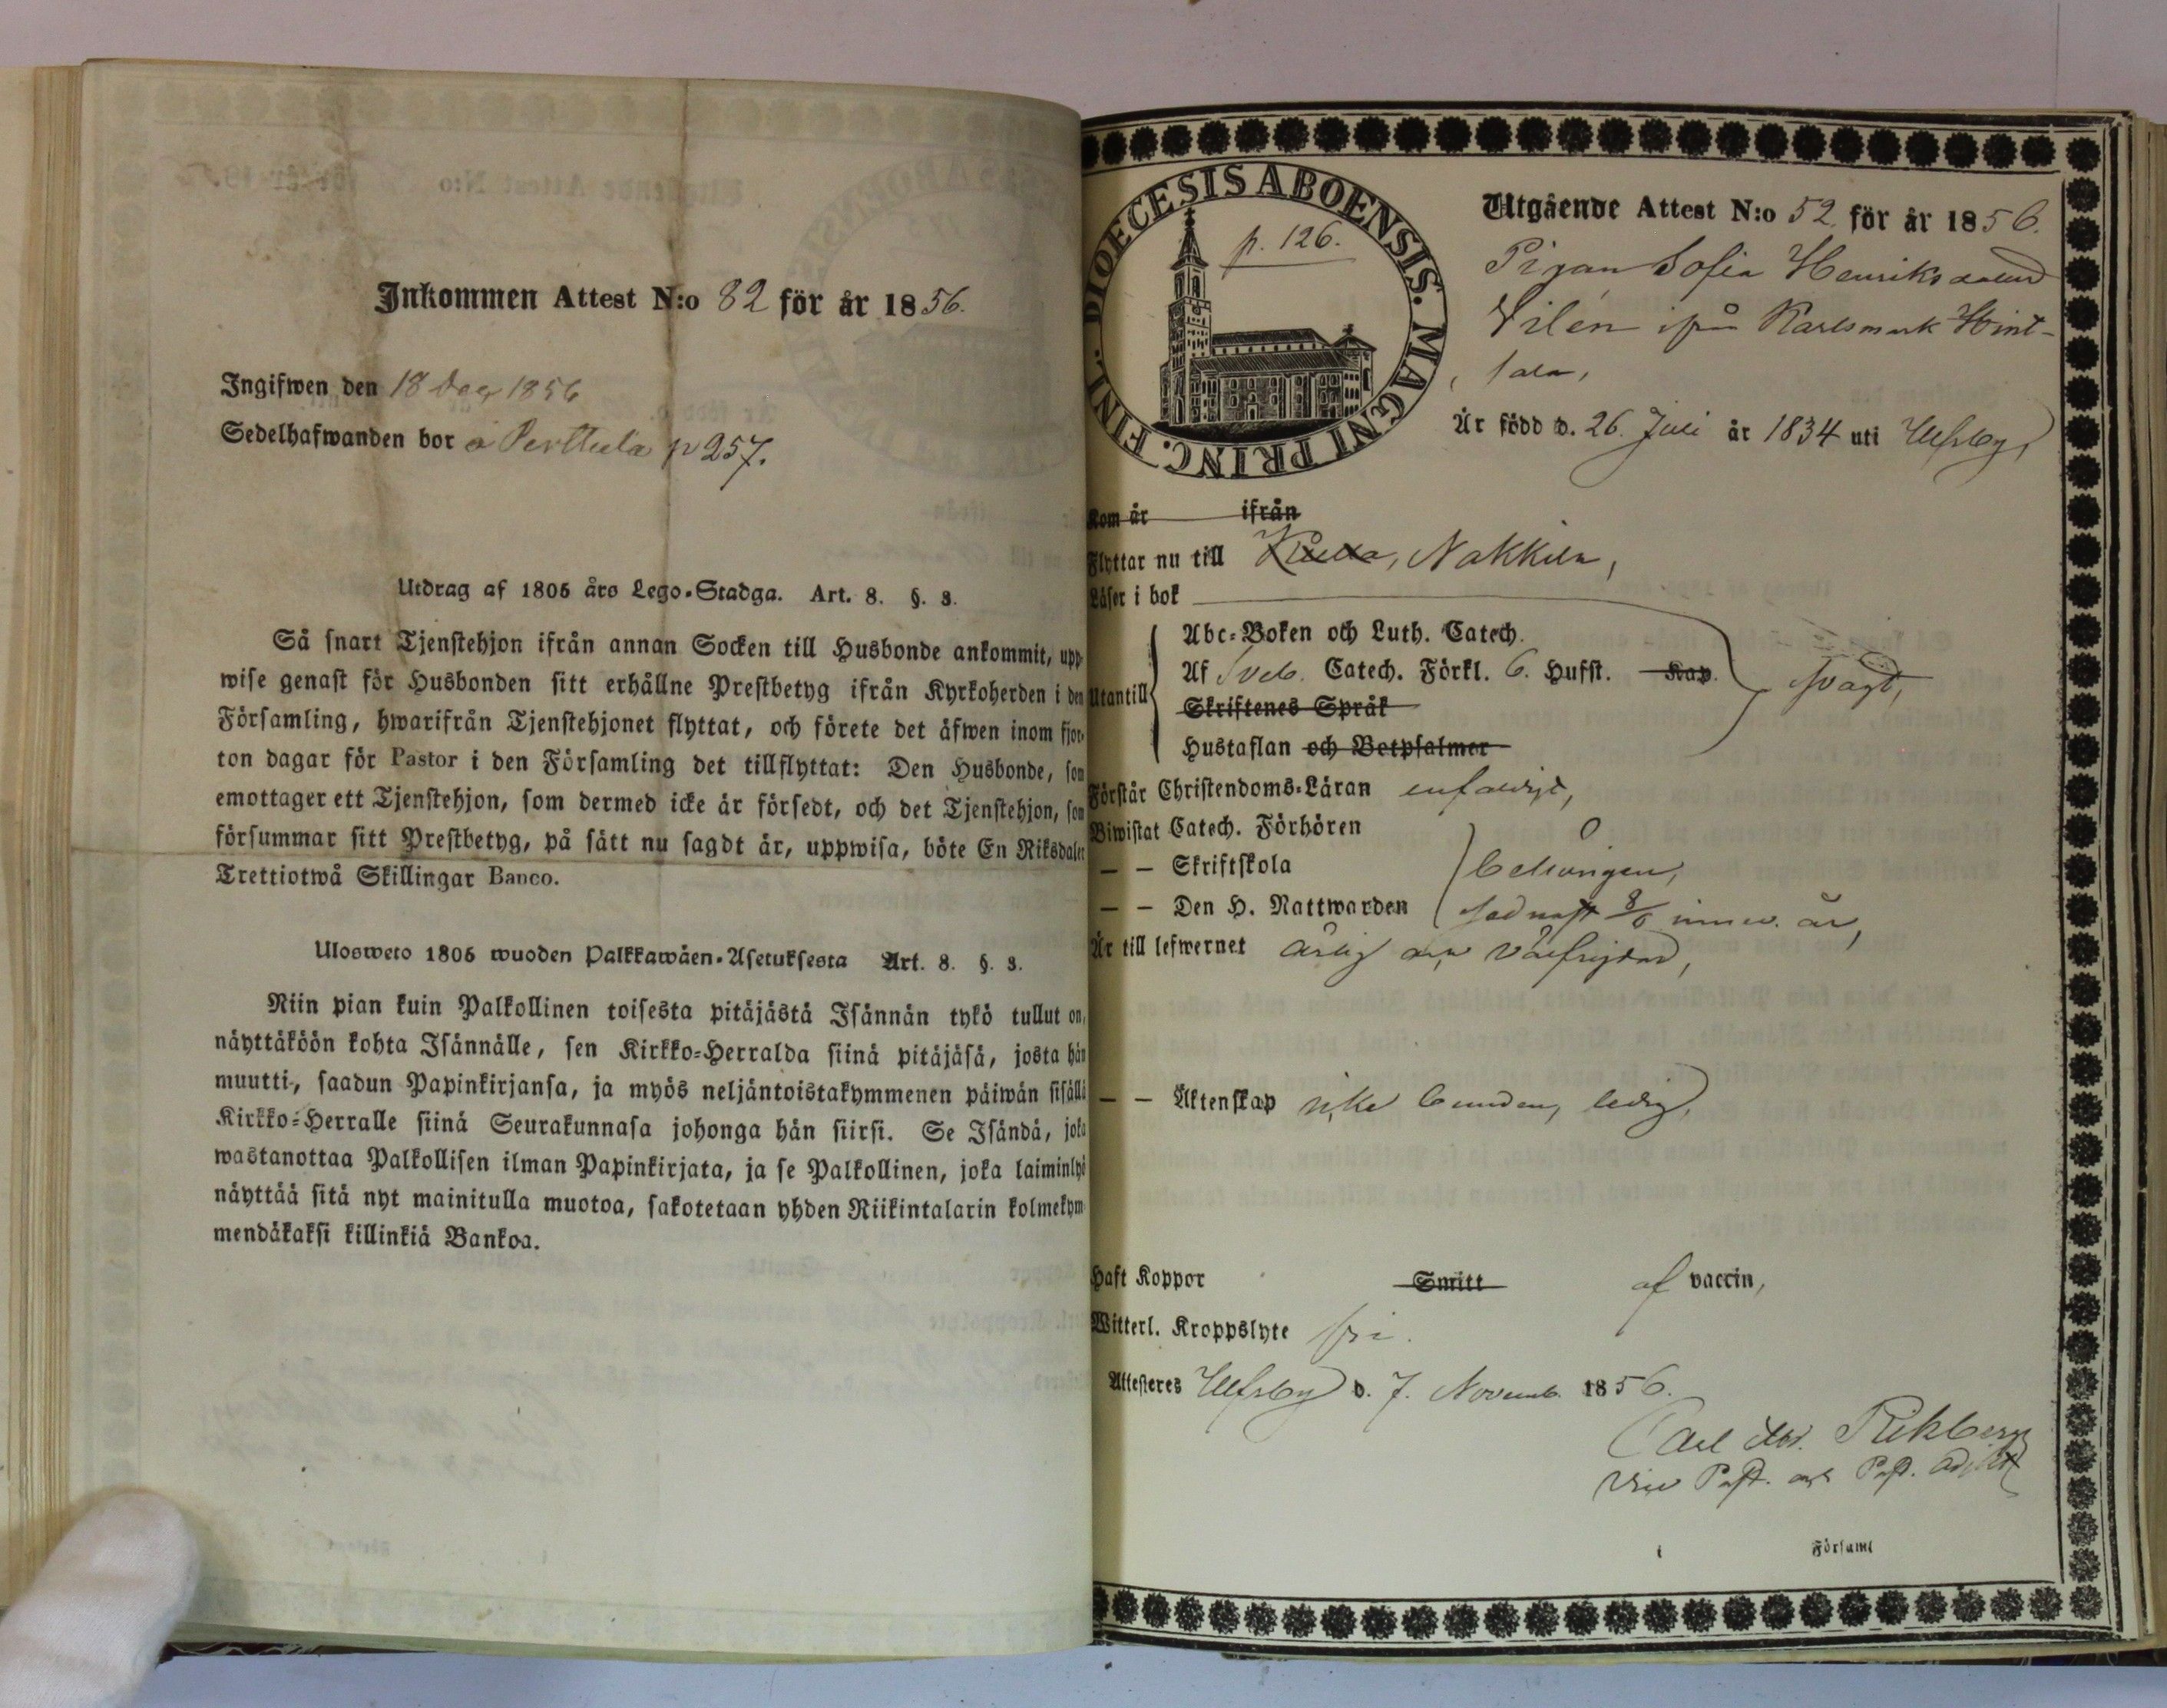 Inkommen Attest N:o 82 för år 1856.
Ingifwen den 18 Dec 1856
Sedelhafwanden bor å Perttula p 257.
Utdrag af 1805 års Lego-Stadga. Art. 8. §. 3.
Så snart Tjenstehjon ifrån annan Socken till Husbonde ankommit, upp-
wise genast för Husbonden sitt erhållne Prestbetyg ifrån Kyrkoherden i den
Församling, hwarifrån Tjenstehjonet flyttat, och förete det äfwen inom fjor-
ton dagar för Pastor i den Församling det tillflyttat: Den Husbonde, som
emottager ett Tjenstehjon, som dermed icke är försedt, och det Tjenstehjon, som
försummar sitt Prestbetyg, på sätt nu sagdt är, uppwisa, böte En Riksdaler
Trettiotwå Skillingar Banco.
Ulosweto 1805 wuoden Palkkawäen-Asetuksesta Art. 8. §. 3.
Niin pian kuin Palkollinen toisesta pitäjästä Isännän tykö tullut on,
näyttäköön kohta Isännälle, sen Kirkko-Herralda siinä pitäjäsä, josta hän
muutti, saadun Papinkirjansa, ja myös neljäntoistakymmenen päiwän sisällä
Kirkko-Herralle siinä Seurakunnasa johonga hän siirsi. Se Isändä, joka
wastanottaa Palkollisen ilman Papinkirjata, ja se Palkollinen, joka laiminlyö
näyttää sitä nyt mainitulla muotoa, sakotetaan yhden Riikintalarin kolmekym
mendäkaksi killinkiä Bankoa.
DIOECESIS ABOENSIS. MAGNI PRINC. FINL.
p. 126.
Utgående Attest N:o 52 för år 1856.
Pigan Sofia Henriksdotter
Vilén ifrån Karlsmark Hint-
sala,
Är född d. 26. Juli år 1834 uti Ulfsby,
Kom år ifrån
Flyttar nu till Nakkila,
Läser i bok
Abc-Boken och Luth. Catech.
Af Sveb. Catech. Förkl. 6. Hufst. Kap.
Utantill
svagt,
Skriftenes Språk
Hustaflan och Botpsalmer
Förstår Christendoms-Läran enfaldigt,
Biwistat Catech. Förhören 0
— — Skriftskola behörigen,
— — Den H. Nattwarden sednast 8/6 innev. år,
Är till lefwernet ärlig och välfrejdad,
— — Äktenskap icke bunden, ledig,
Haft Koppor Smitt af vaccin,
Witterl. Kroppslyte fri.
Attesteres Ulfsby d. 7. Novemb. 1856.
Carl Rikberg
Vice Past. Past. Adjkt
i Församl